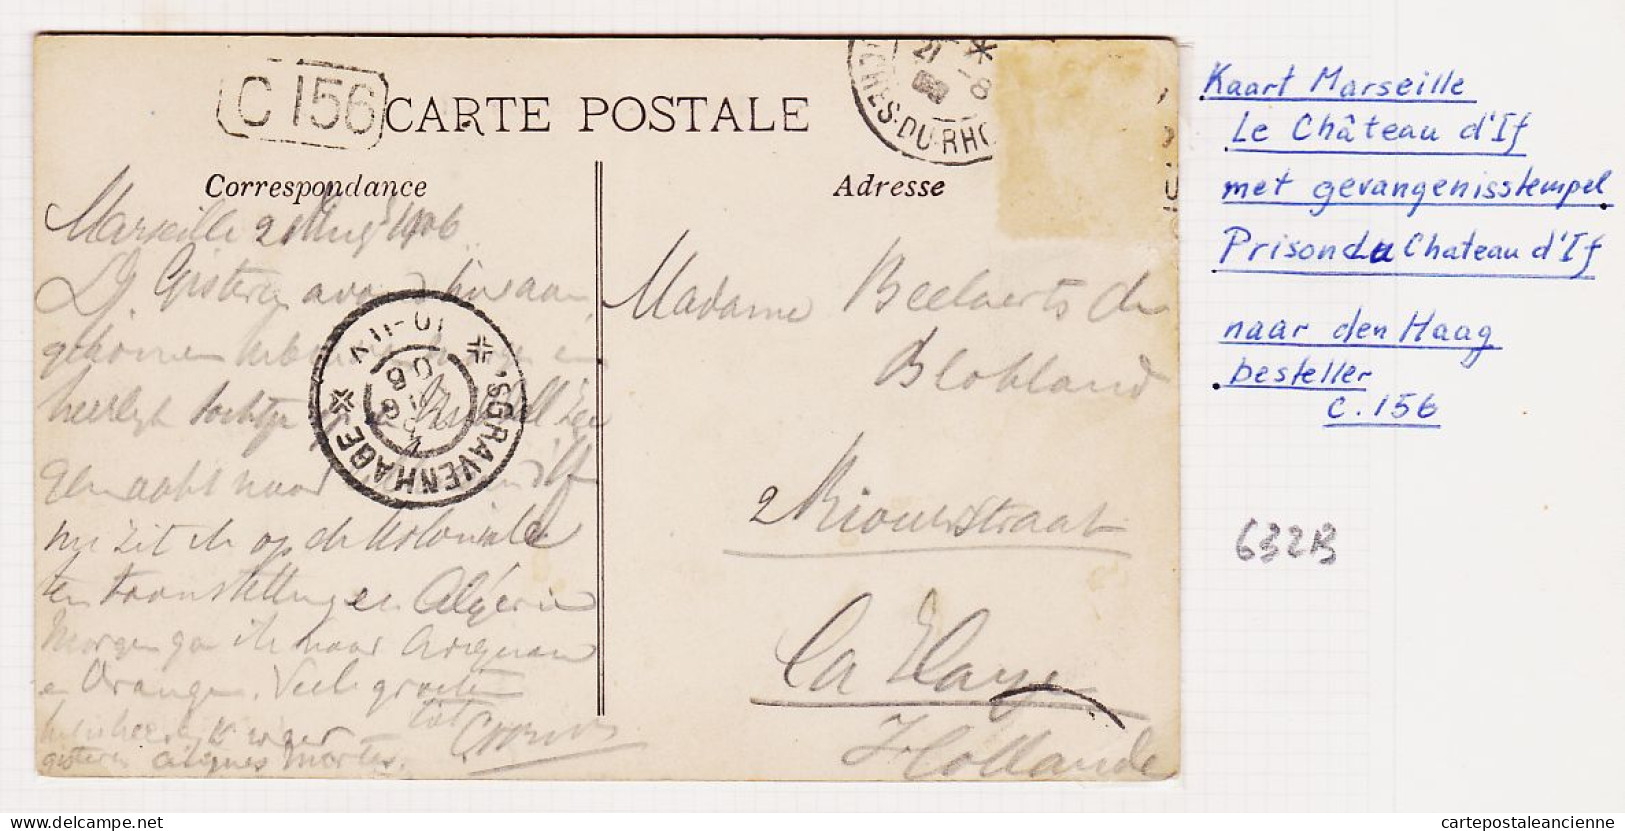 C 156
CARTE POSTALE
21 * -8
CHES-DU-RHO
Correspondance
Adresse
Marseille 21 Aug 1906
gekomen
heerlijk tochtje
Gemaakt naar
nu zit ik op de Koloniale
tentoonstelling en Algérie
Morgen ga ik naar Avignon
en Orange. Veel groeten
tot
gisteren Aigues Mortes.
'SGRAVENHAGE
10-11V
Madame Beelaerts de
Blokland
2 Riouwstraat
La Haye
Hollande
Kaart Marseille
Le Château d'If
met gevangenisstempel
Prison du Chateau d'If
naar den Haag
besteller
c. 156
632B
www.delcampe.net
cartepostaleancienne